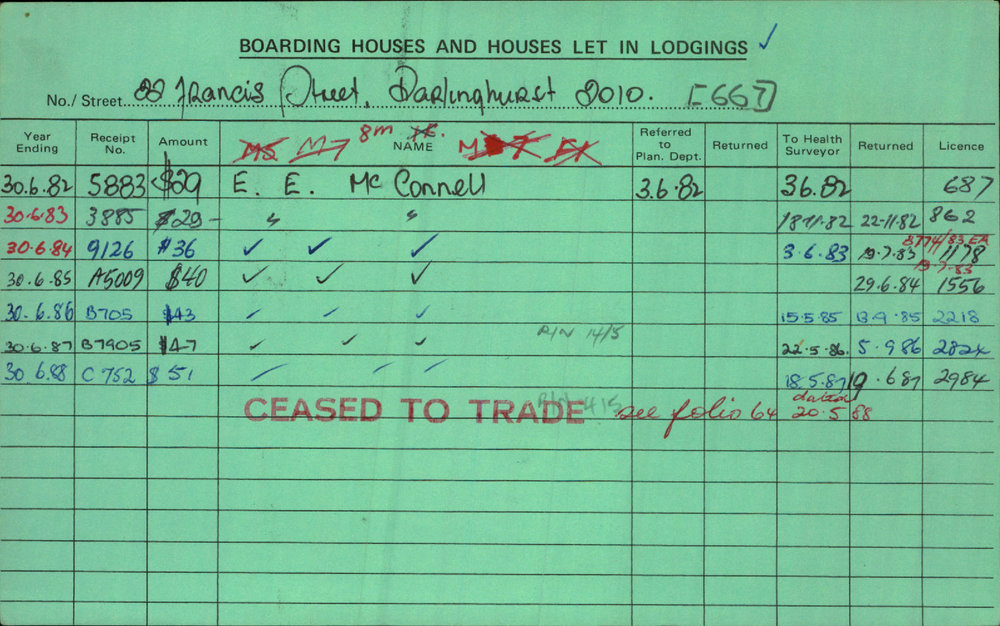 BOARDING HOUSES AND HOUSES LET IN LODGINGS ✓
No./Street 22 Francis Street, Darlinghurst 2010. [667]
Year Ending Receipt No. Amount NAME Referred to Plan. Dept. Returned To Health Surveyor Returned Licence
M5 M7 8m
30.6.82 5883 $29 E. E. McConnell 3.6.82 3 6.82 687
30.6.83 3885 $29- " " 18-11-82 22-11-82 862
8774/83 EA
30.6.84 9126 $36 ✓ ✓ ✓ 3.6.83 19.7.83 1178
19.7.83
30.6.85 A5009 $40 ✓ ✓ ✓ 29.6.84 1556
30.6.86 B705 $43 ✓ ✓ ✓ 15.5.85 13.9.85 2218
R/N 14/5
30.6.87 B7905 $47 ✓ ✓ ✓ 22.5.86. 5.9.86 2824
30.6.88 C752 $51 ✓ ✓ ✓ 18.5.87 19.6.87 2984
CEASED TO TRADE see folio 64 dated 20.5.88